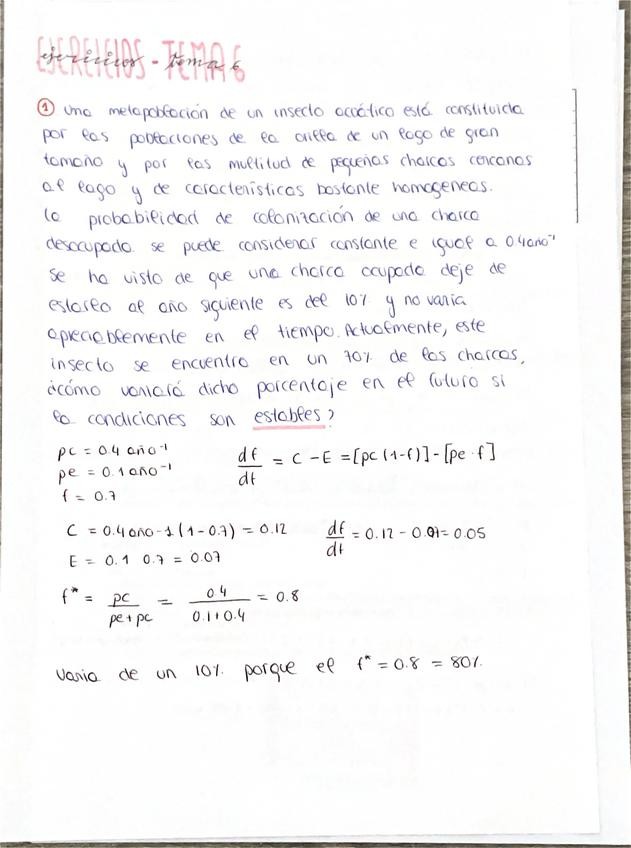 EJERCICIOS - TEMA 6
ejercicios - tema 6
① Una metapoblación de un insecto acuático está constituida
por las poblaciones de la orilla de un lago de gran
tamaño y por las multitud de pequeñas charcas cercanas
al lago y de características bastante homogeneas.
la probabilidad de colonización de una charca
desocupada se puede considerar constante e igual a 0.4año⁻¹
se ha visto de que una charca ocupada deje de
estarlo al año siguiente es del 10% y no varia
apreciablemente en el tiempo. Actualmente, este
insecto se encuentra en un 70% de las charcas,
¿cómo variará dicho porcentaje en el futuro si
la condiciones son estables?
pc = 0.4 año⁻¹
pe = 0.1 año⁻¹
f = 0.7
df/dt = C - E = [pc (1-f)] - [pe · f]
C = 0.4año-1 (1-0.7) = 0.12
E = 0.1 0.7 = 0.07
df/dt = 0.12 - 0.07 = 0.05
f* = pc/pe+pc = 0.4/0.1+0.4 = 0.8
Varia de un 10% porque el f* = 0.8 = 80%